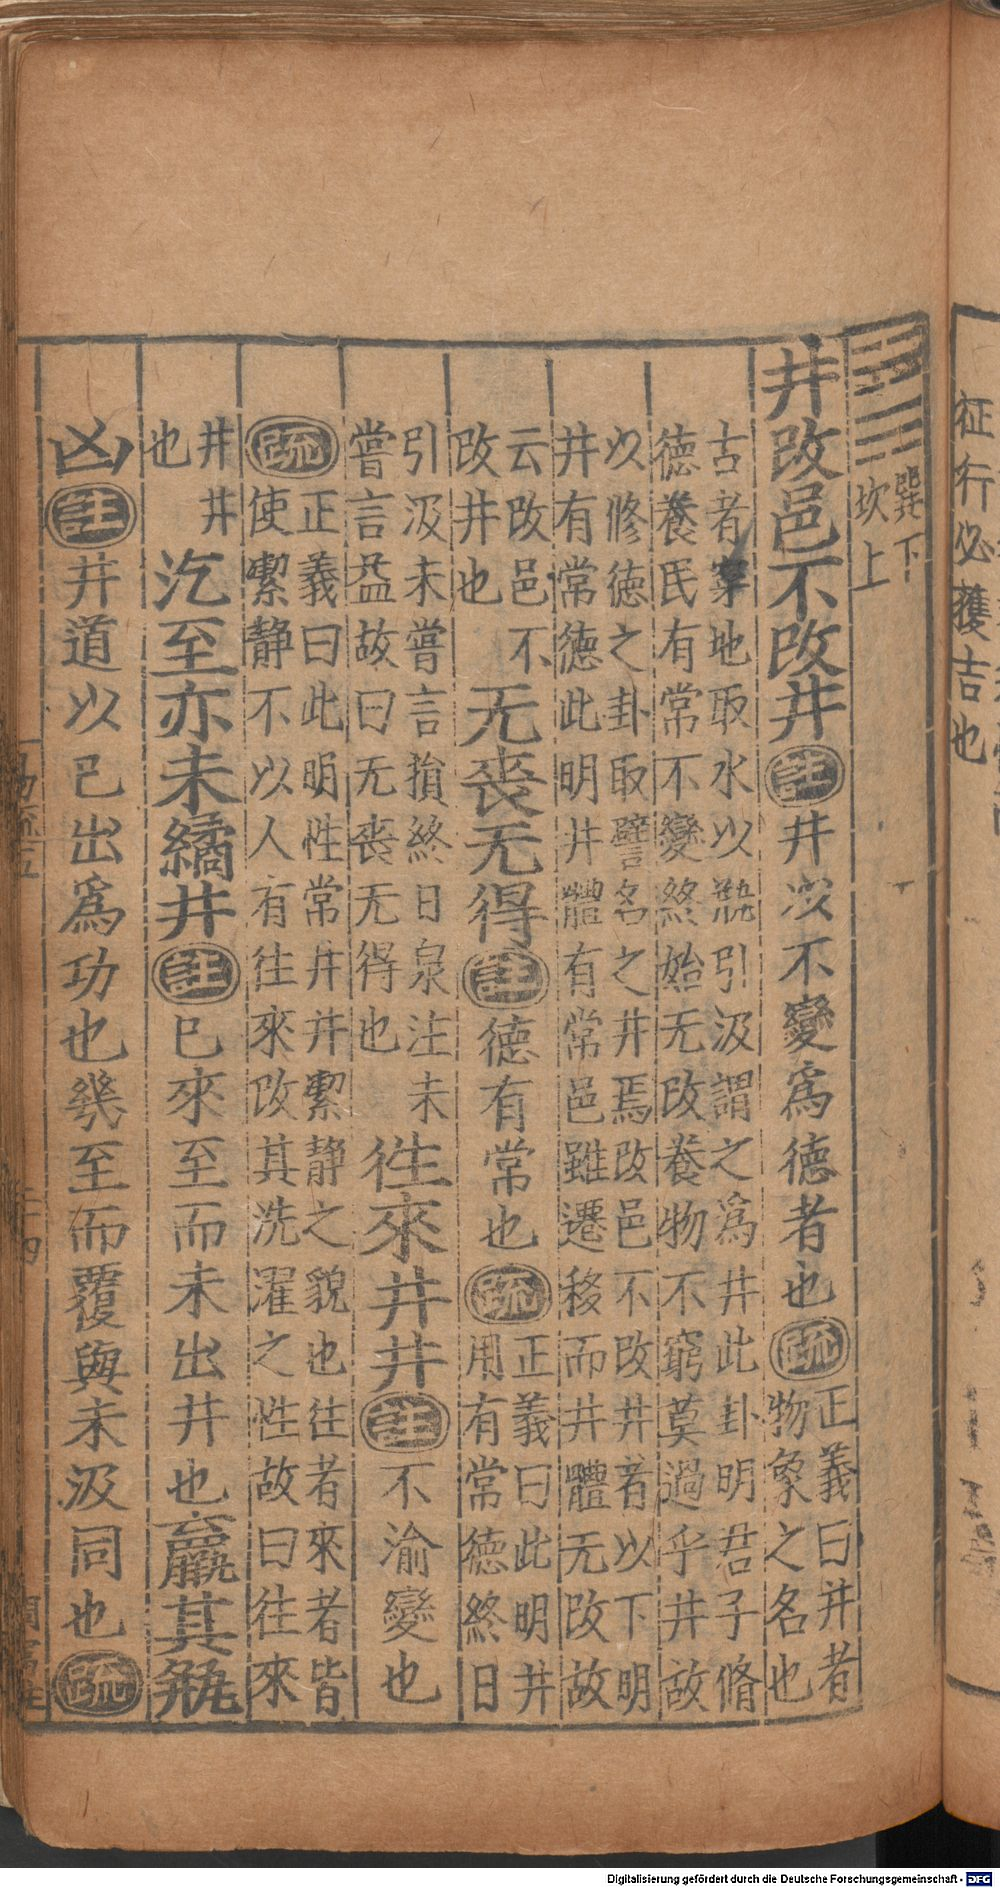 征行必獲吉也
巽下
坎上
井改邑不改井註井以不變爲德者也疏正義曰井者
物象之名也
古者穿地取水以甁引汲謂之爲井此卦明君子脩
德養民有常不變終始无改養物不窮莫過乎井故
以修德之卦取譬名之井焉改邑不改井者以下明
井有常德此明井體有常邑雖遷移而井體无改故
云改邑不
改井也
无喪无得註德有常也疏正義曰此明井
用有常德終日
引汲未嘗言損終日泉注未
嘗言益故曰无喪无得也
往來井井註不渝變也
疏正義曰此明性常井井絜静之貌也往者來者皆
使絜静不以人有往來改其洗濯之性故曰往來
井井
也
汔至亦未繘井註已來至而未出井也羸其甁
凶註井道以已出爲功也幾至而覆與未汲同也疏
Digitalisierung gefördert durch die Deutsche Forschungsgemeinschaft - DFG